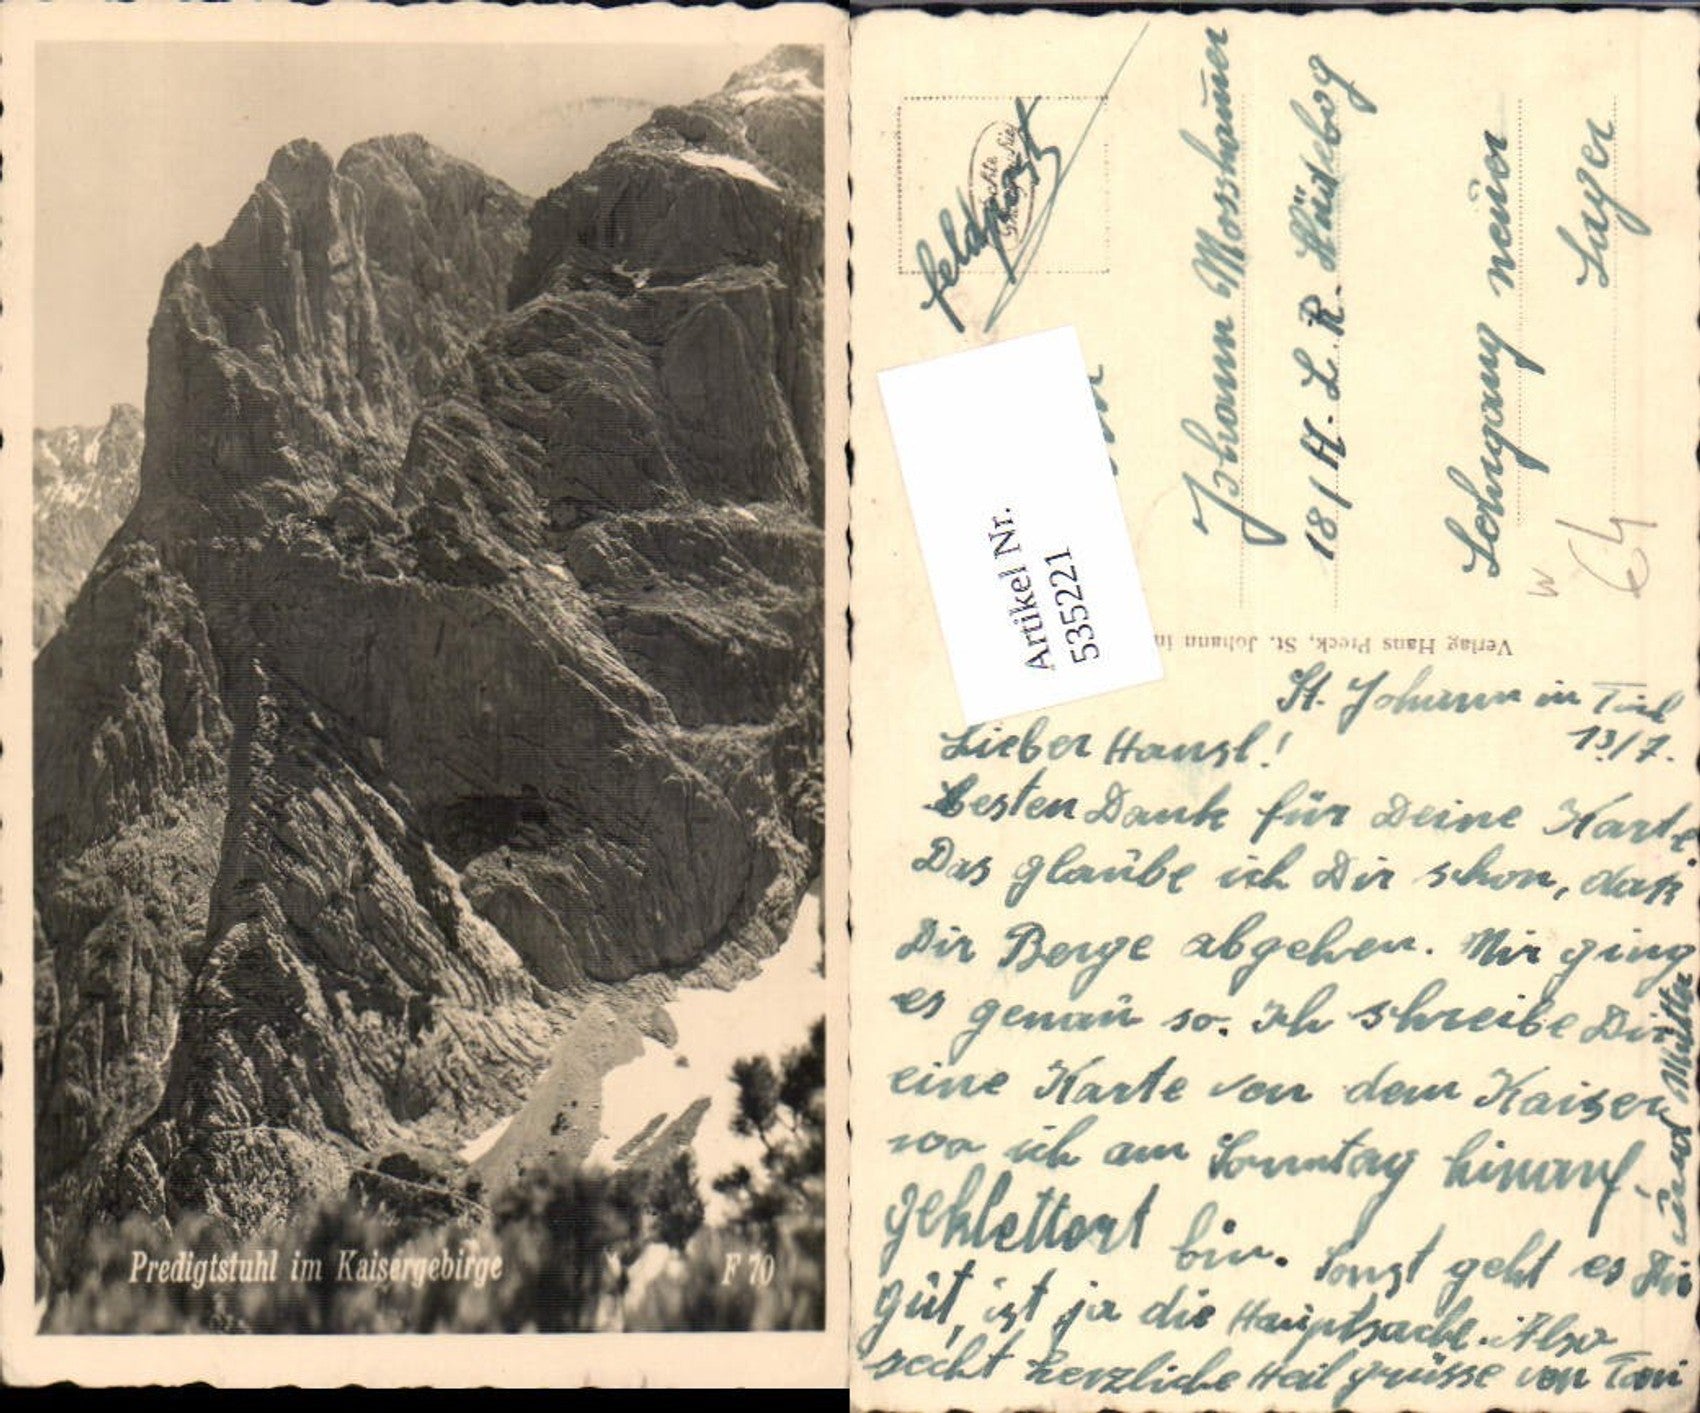 Predigtstuhl im Kaisergebirge
F 70
Feldpost
Johann Mosshauer
18/H. L. R.
neuer
Lager
W
64
Artikel Nr.
535221
Verlag Hans Preck, St. Johann in
St. Johann in Tirol
13/7.
Lieber Hansl!
besten Dank für Deine Karte.
Das glaube ich Dir schon, daß
Dir Berge abgehen. Mir ging
es genau so. Ich schreibe Dir
eine Karte von dem Kaiser
wo ich am Sonntag hinauf-
geklettert bin. Sonst geht es Dir
gut, ist ja die Hauptsache. Also
recht herzliche Heilgrüsse von Toni
und Mutter